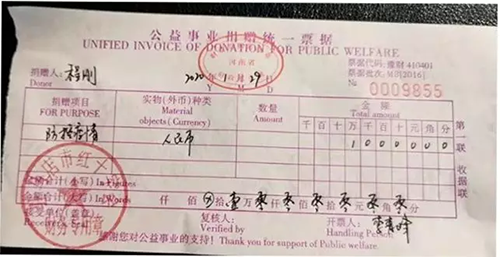 公益事业捐赠统一票据
UNIFIED INVOICE OF DONATION FOR PUBLIC WELFARE
河南省
票据代码:豫财 410401
捐赠人: 程刚 2020年 1月 29日
票据批次:M[2016]
Donor Y M D
№ 0009855
捐赠项目 实物(外币)种类 数量 金额
FOR PURPOSE Material objects (Currency) Amount Total amount
千 百 十 万 千 百 十 元 角 分
防控疫情 人民币 1 0 0 0 0 0 0
第一联 收据联
金额合计(小写) In Figures
金额合计(大写) In Words 仟 佰 拾 壹万 零仟 零佰 零拾 零元 零角 零分
接受单位(盖章) 复核人: 开票人:
Receiving Party Verified by Handling Person
感谢您对公益事业的支持! Thank you for support of Public welfare.
市红十
财务专用章